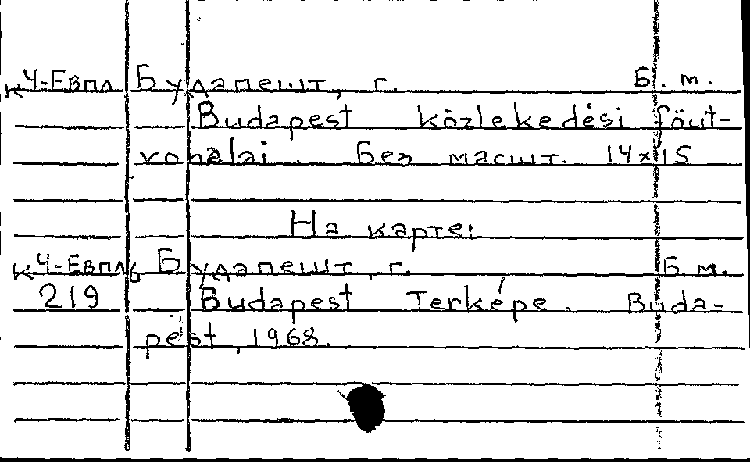 К Ч-Евпл Будапешт, г. Б. м.
Budapest közlekedési föút-
vonalai. Без масшт. 14x15
На карте:
К Ч-Евпл6 Будапешт, г. Б м.
219 Budapest Terképe. Buda-
pest, 1968.